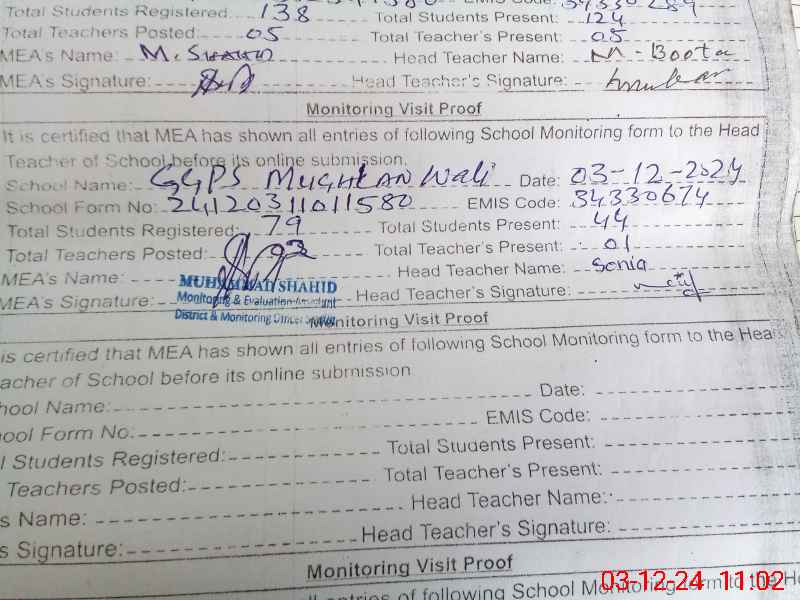 EMIS Code:
Total Students Registered: 138 Total Students Present: 124
Total Teachers Posted: 05 Total Teacher's Present: 05
MEA's Name: M. Shahid Head Teacher Name: M-Boota
MEA's Signature: Head Teacher's Signature:
Monitoring Visit Proof
It is certified that MEA has shown all entries of following School Monitoring form to the Head
Teacher of School before its online submission.
School Name: GGPS MUGHLAN Wali Date: 03-12-2024
School Form No: 24120311011580 EMIS Code: 34330674
Total Students Registered: 79 Total Students Present: 44
Total Teachers Posted: 02 Total Teacher's Present: 01
MEA's Name: MUHAMMAD SHAHID Head Teacher Name: Sonia
MEA's Signature: Monitoring & Evaluation Assistant Head Teacher's Signature:
District & Monitoring Officer
Monitoring Visit Proof
is certified that MEA has shown all entries of following School Monitoring form to the Hea
acher of School before its online submission
hool Name: Date:
ool Form No. EMIS Code:
l Students Registered: Total Students Present:
Teachers Posted: Total Teacher's Present:
s Name: Head Teacher Name:
s Signature: Head Teacher's Signature:
Monitoring Visit Proof
all entries of following School Monitoring form to the H
03-12-24 11:02